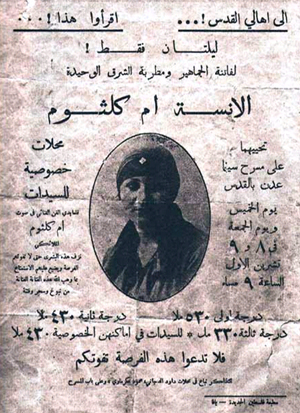 الى اهالي القدس !... اقرأوا هذا !...
ليلتان فقط !
لفاتنة الجماهير ومطربة الشرق الوحيدة
الانسة ام كلثوم
محلات
خصوصية
للسيدات
ام كلثوم
تحييهما
على مسرح سينما
عدن بالقدس
يوم الخميس
ويوم الجمعة
في ٨ و ٩
تشرين الاول
الساعة ٩ مساء
درجة اولى ٥٣٠ ملا درجة ثانية ٤٣٠ ملا
درجة ثالثة ٣٣٠ مل * للسيدات في اماكنهن الخصوصية ٤٣٠ ملا
فلا تدعوا هذه الفرصة تفوتكم
مطبعة فلسطين الجديدة — يافا